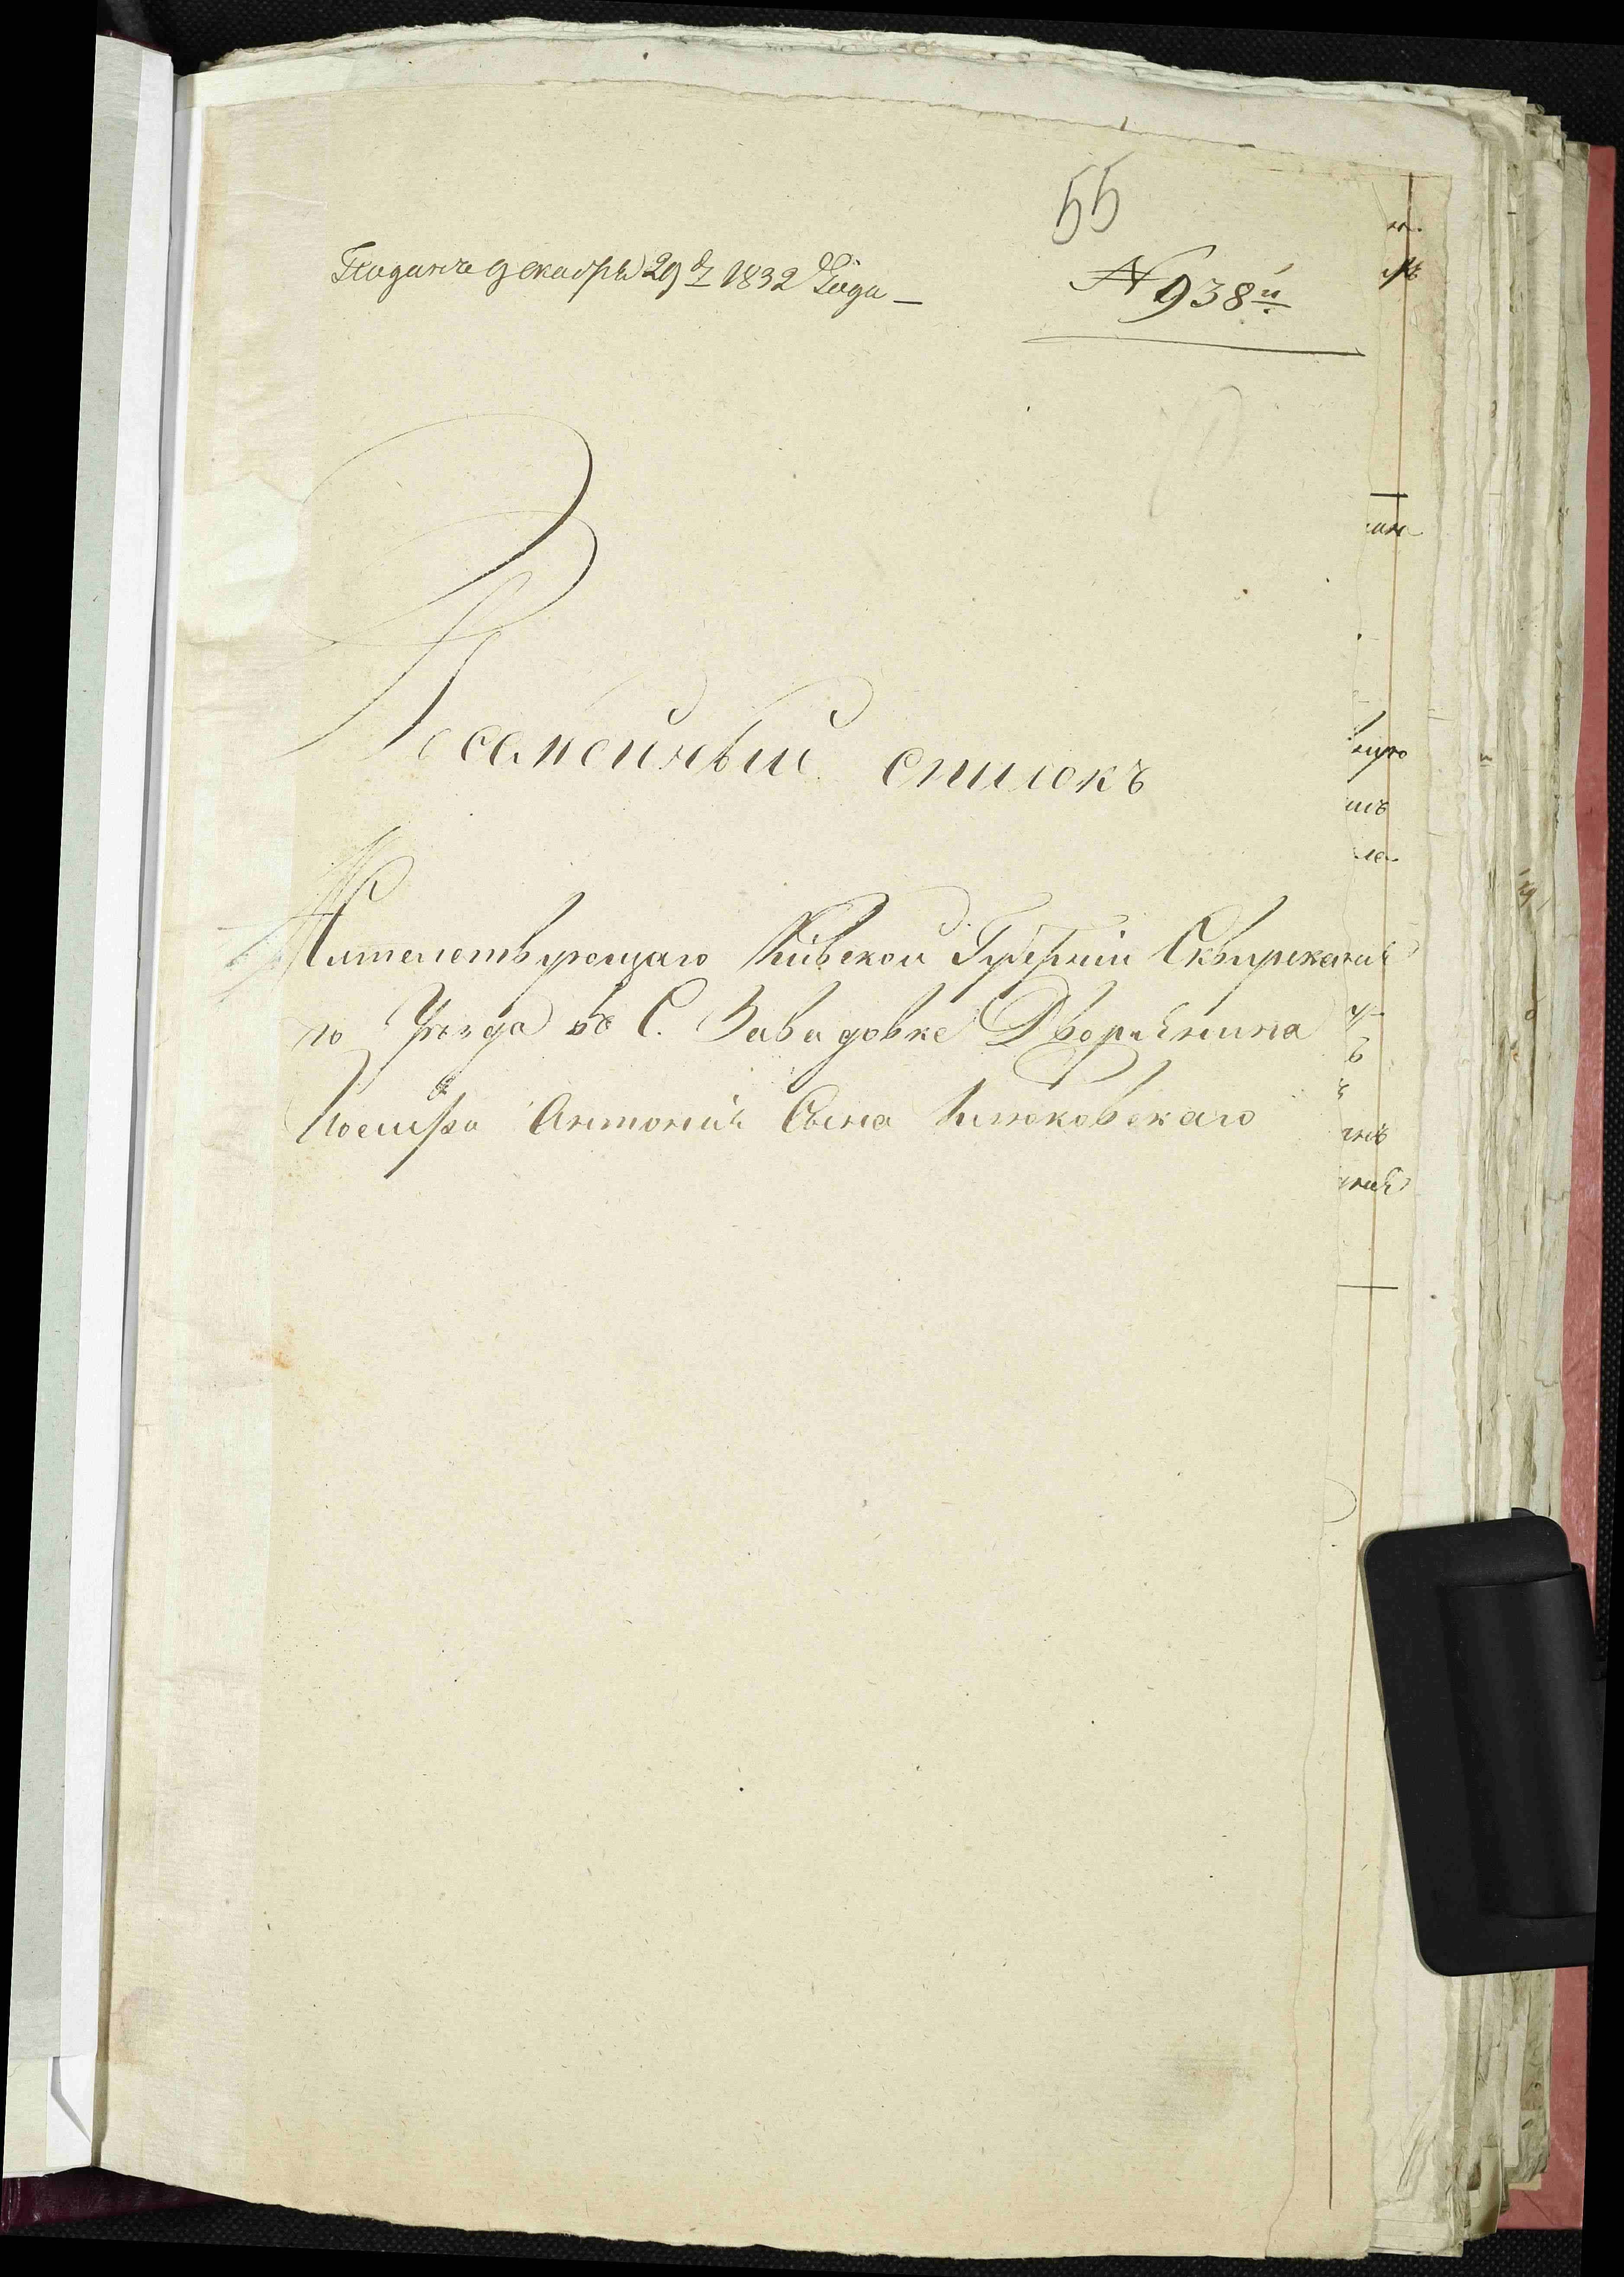 55
Поданъ декабря 29 д 1832 Года —
№ 938й
Посемейный списокъ
Жительствующаго Кіевской Губерніи Сквирскаго
го Уѣзда въ С. Завадовке Дворянина
Іосифа Антонія Сына